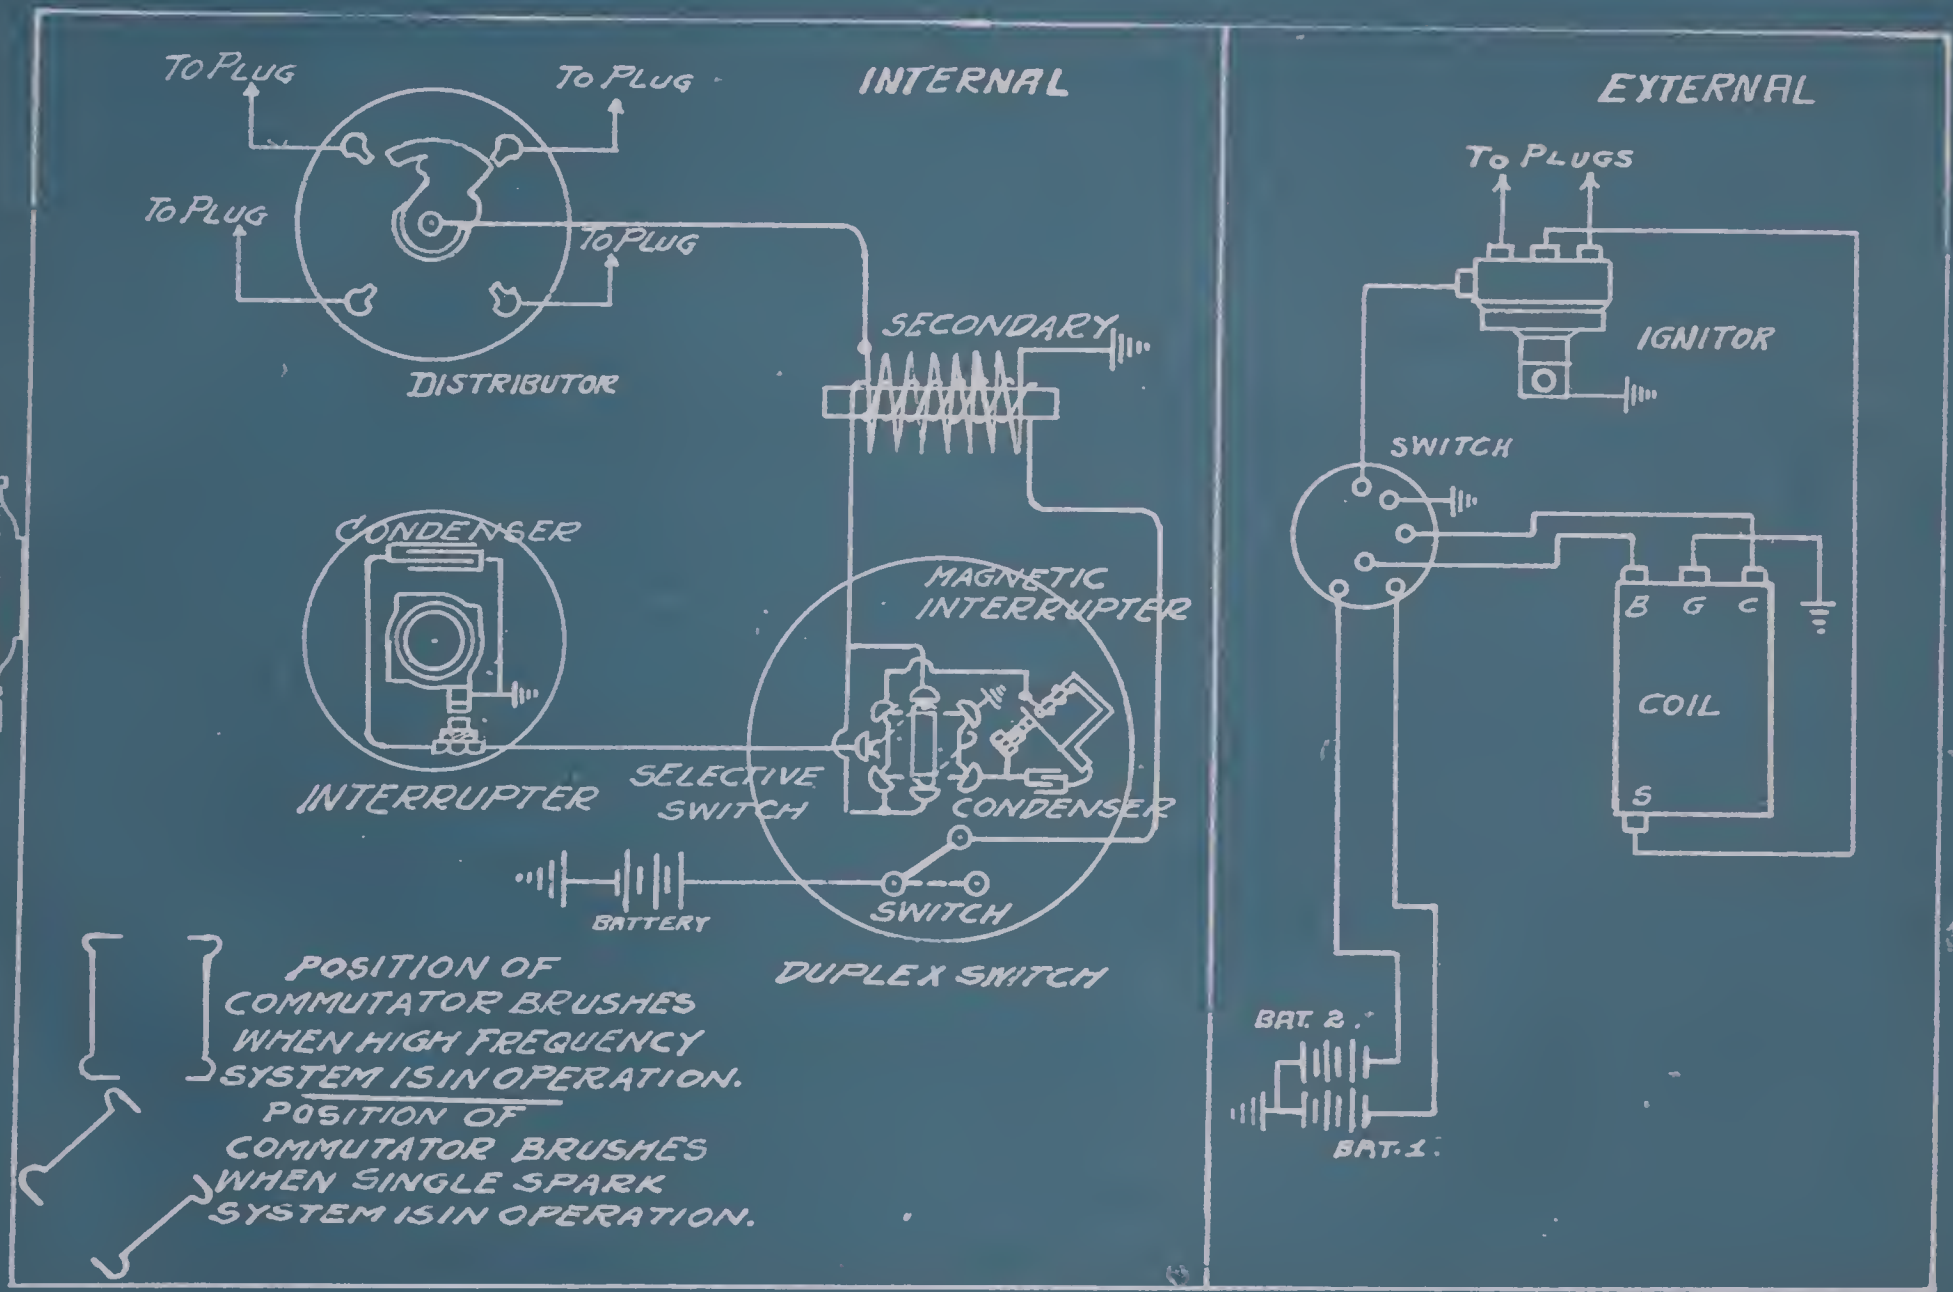 INTERNAL
To PLUG
To PLUG
To PLUG
To PLUG
DISTRIBUTOR
SECONDARY
CONDENSER
INTERRUPTER
MAGNETIC
INTERRUPTER
SELECTIVE
SWITCH
CONDENSER
SWITCH
BATTERY
DUPLEX SWITCH
POSITION OF
COMMUTATOR BRUSHES
WHEN HIGH FREQUENCY
SYSTEM IS IN OPERATION.
POSITION OF
COMMUTATOR BRUSHES
WHEN SINGLE SPARK
SYSTEM IS IN OPERATION.
EXTERNAL
To PLUGS
IGNITOR
SWITCH
B G C
COIL
S
BAT. 2.
BAT. 1.